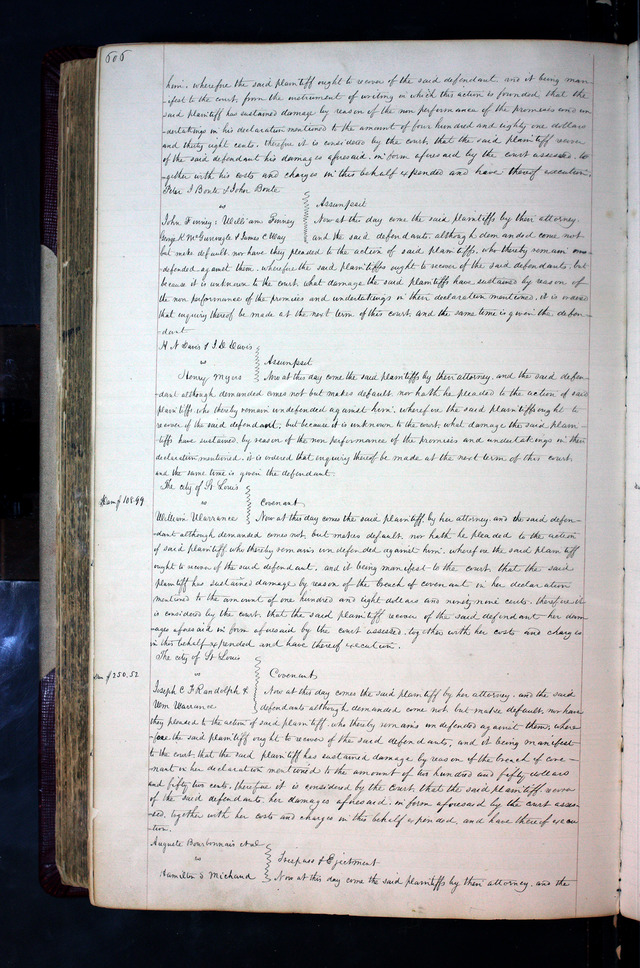 606
him, wherefore the said plaintiff ought to recover of the said defendant and it being man-
ifest to the court, from the instrument of writing on which this action is founded that the
said plaintiff has sustained damage by reason of the non performance of the promises and un-
dertakings in his declaration mentioned to the amount of four hundred and eighty one dollars
and thirty eight cents, therefore it is considered by the court, that the said plaintiff recover
of the said defendant his damages aforesaid, in form aforesaid by the court assessed, to-
gether with his costs and charges in this behalf expended and have thereof execution.
Peter I Bonte & John Bonte
vs
Assumpsit
John Finney, William Finney
Now at this day come the said plaintiffs by their attorney,
George K McGunnegle & James C Way
and the said defendants, although demanded come not
but make default, nor have they pleaded to the action of said plaintiffs, who thereby remain un-
defended against them, wherefore the said plaintiffs ought to recover of the said defendants, but
because it is unknown to the court, what damage the said plaintiffs have sustained by reason of
the non performance of the promises and undertakings in their declaration mentioned, it is ordered
that inquiry thereof be made at the next term of this court, and the same time is given the defen-
-dant
H N Davis & J D Davis
vs
Assumpsit
Henry Myers
Now at this day come the said plaintiffs by their attorney, and the said defen-
dant although demanded comes not but makes default, nor hath he pleaded to the action of said
plaintiffs who thereby remain undefended against him, wherefore the said plaintiffs ought to
recover of the said defendant, but because it is unknown to the court, what damage the said plain-
tiffs have sustained, by reason of the non performance of the promises and undertakings in their
declaration mentioned, it is ordered that inquiry thereof be made at the next term of this court,
and the same time is given the defendant
The city of St Louis
Dam $108.99
vs
Covenant
William Warrance
Now at this day comes the said plaintiff by her attorney, and the said defen-
dant although demanded comes not, but makes default, nor hath he pleaded to the action
of said plaintiff who thereby remains undefended against him, wherefore the said plaintiff
ought to recover of the said defendant, and it being manifest to the court that the said
plaintiff has sustained damage by reason of the breach of covenant in her declaration
mentioned to the amount of one hundred and eight dollars and ninety nine cents, therefore it
is considered by the court, that the said plaintiff recover of the said defendant her dam-
ages aforesaid in form aforesaid by the court assessed, together with her costs and charges
in this behalf expended and have thereof execution.
The city of St Louis
Dam $250.52
vs
Covenant
Joseph C F Randolph &
Now at this day comes the said plaintiff by her attorney, and the said
Wm Warrance
defendants although demanded come not but make default, nor have
they pleaded to the action of said plaintiff, who thereby remains undefended against them, where-
-fore the said plaintiff ought to recover of the said defendants, and it being manifest
to the court, that the said plaintiff has sustained damage by reason of the breach of cove-
nant in her declaration mentioned to the amount of two hundred and fifty dollars
and fifty two cents, therefore it is considered by the court, that the said plaintiff recover
of the said defendants, her damages aforesaid, in form aforesaid by the court asses-
sed, together with her costs and charges in this behalf expended, and have thereof execu-
tion.
Auguste Bourbonnais et al
vs
Trespass & Ejectment
Hamilton & Michaud
Now at this day come the said plaintiffs by their attorney, and the